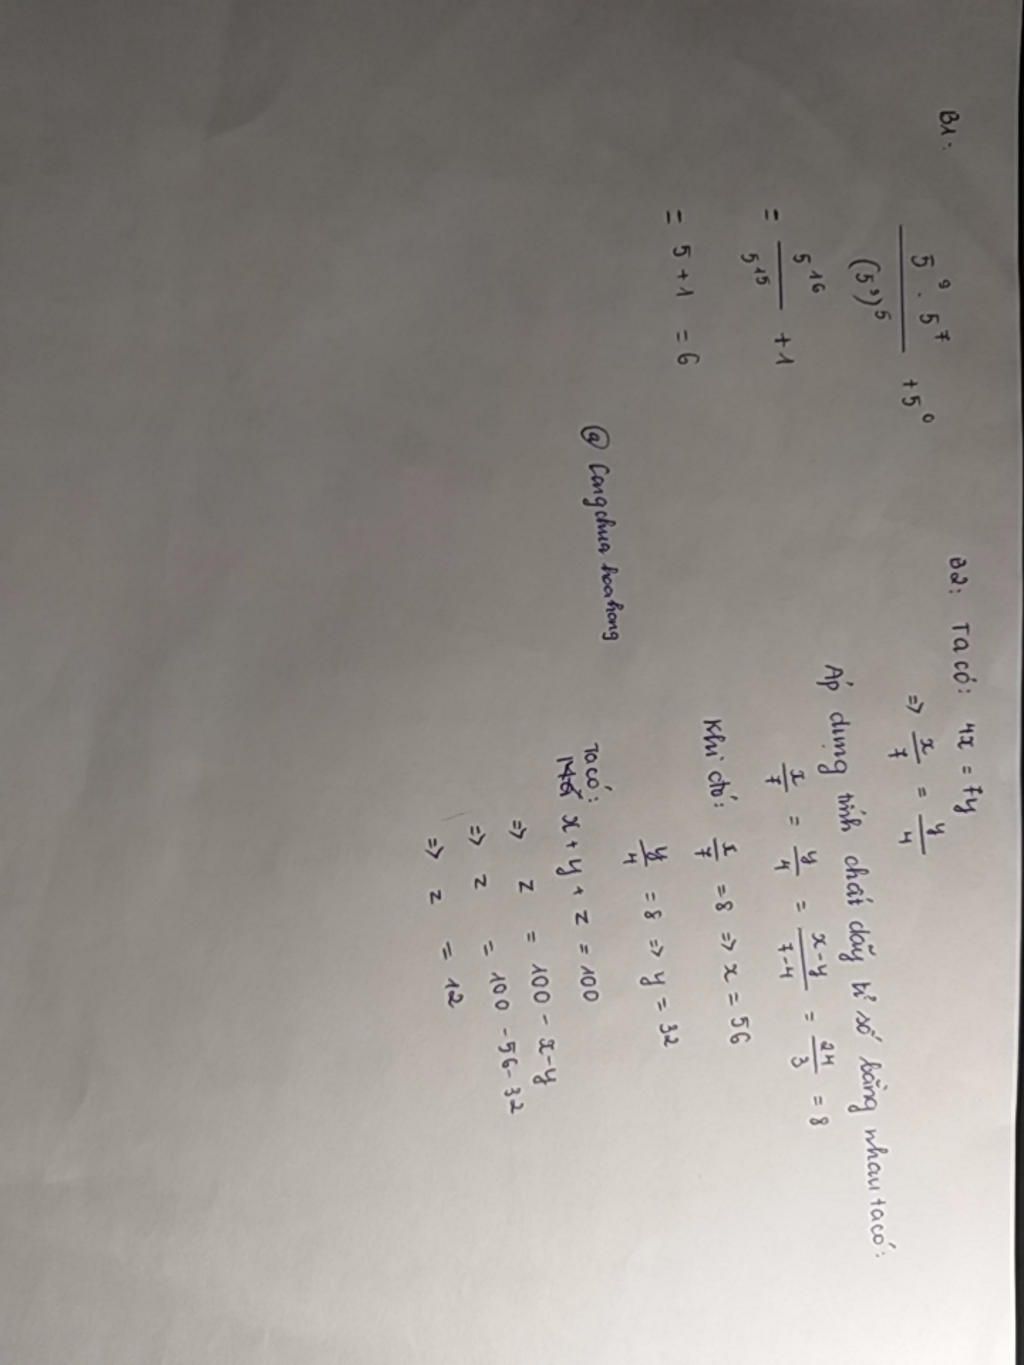 B1:
5⁹ . 5⁷ / (5³)⁵ + 5⁰
= 5¹⁶ / 5¹⁵ + 1
= 5 + 1 = 6
@ Congchua hoahong
B2: Ta có: 4x = 7y
=> x/7 = y/4
Áp dụng tính chất dãy tỉ số bằng nhau ta có:
x/7 = y/4 = x-y / 7-4 = 24/3 = 8
Khi đó: x/7 = 8 => x = 56
y/4 = 8 => y = 32
Ta có: x + y + z = 100
=> z = 100 - x - y
=> z = 100 - 56 - 32
=> z = 12